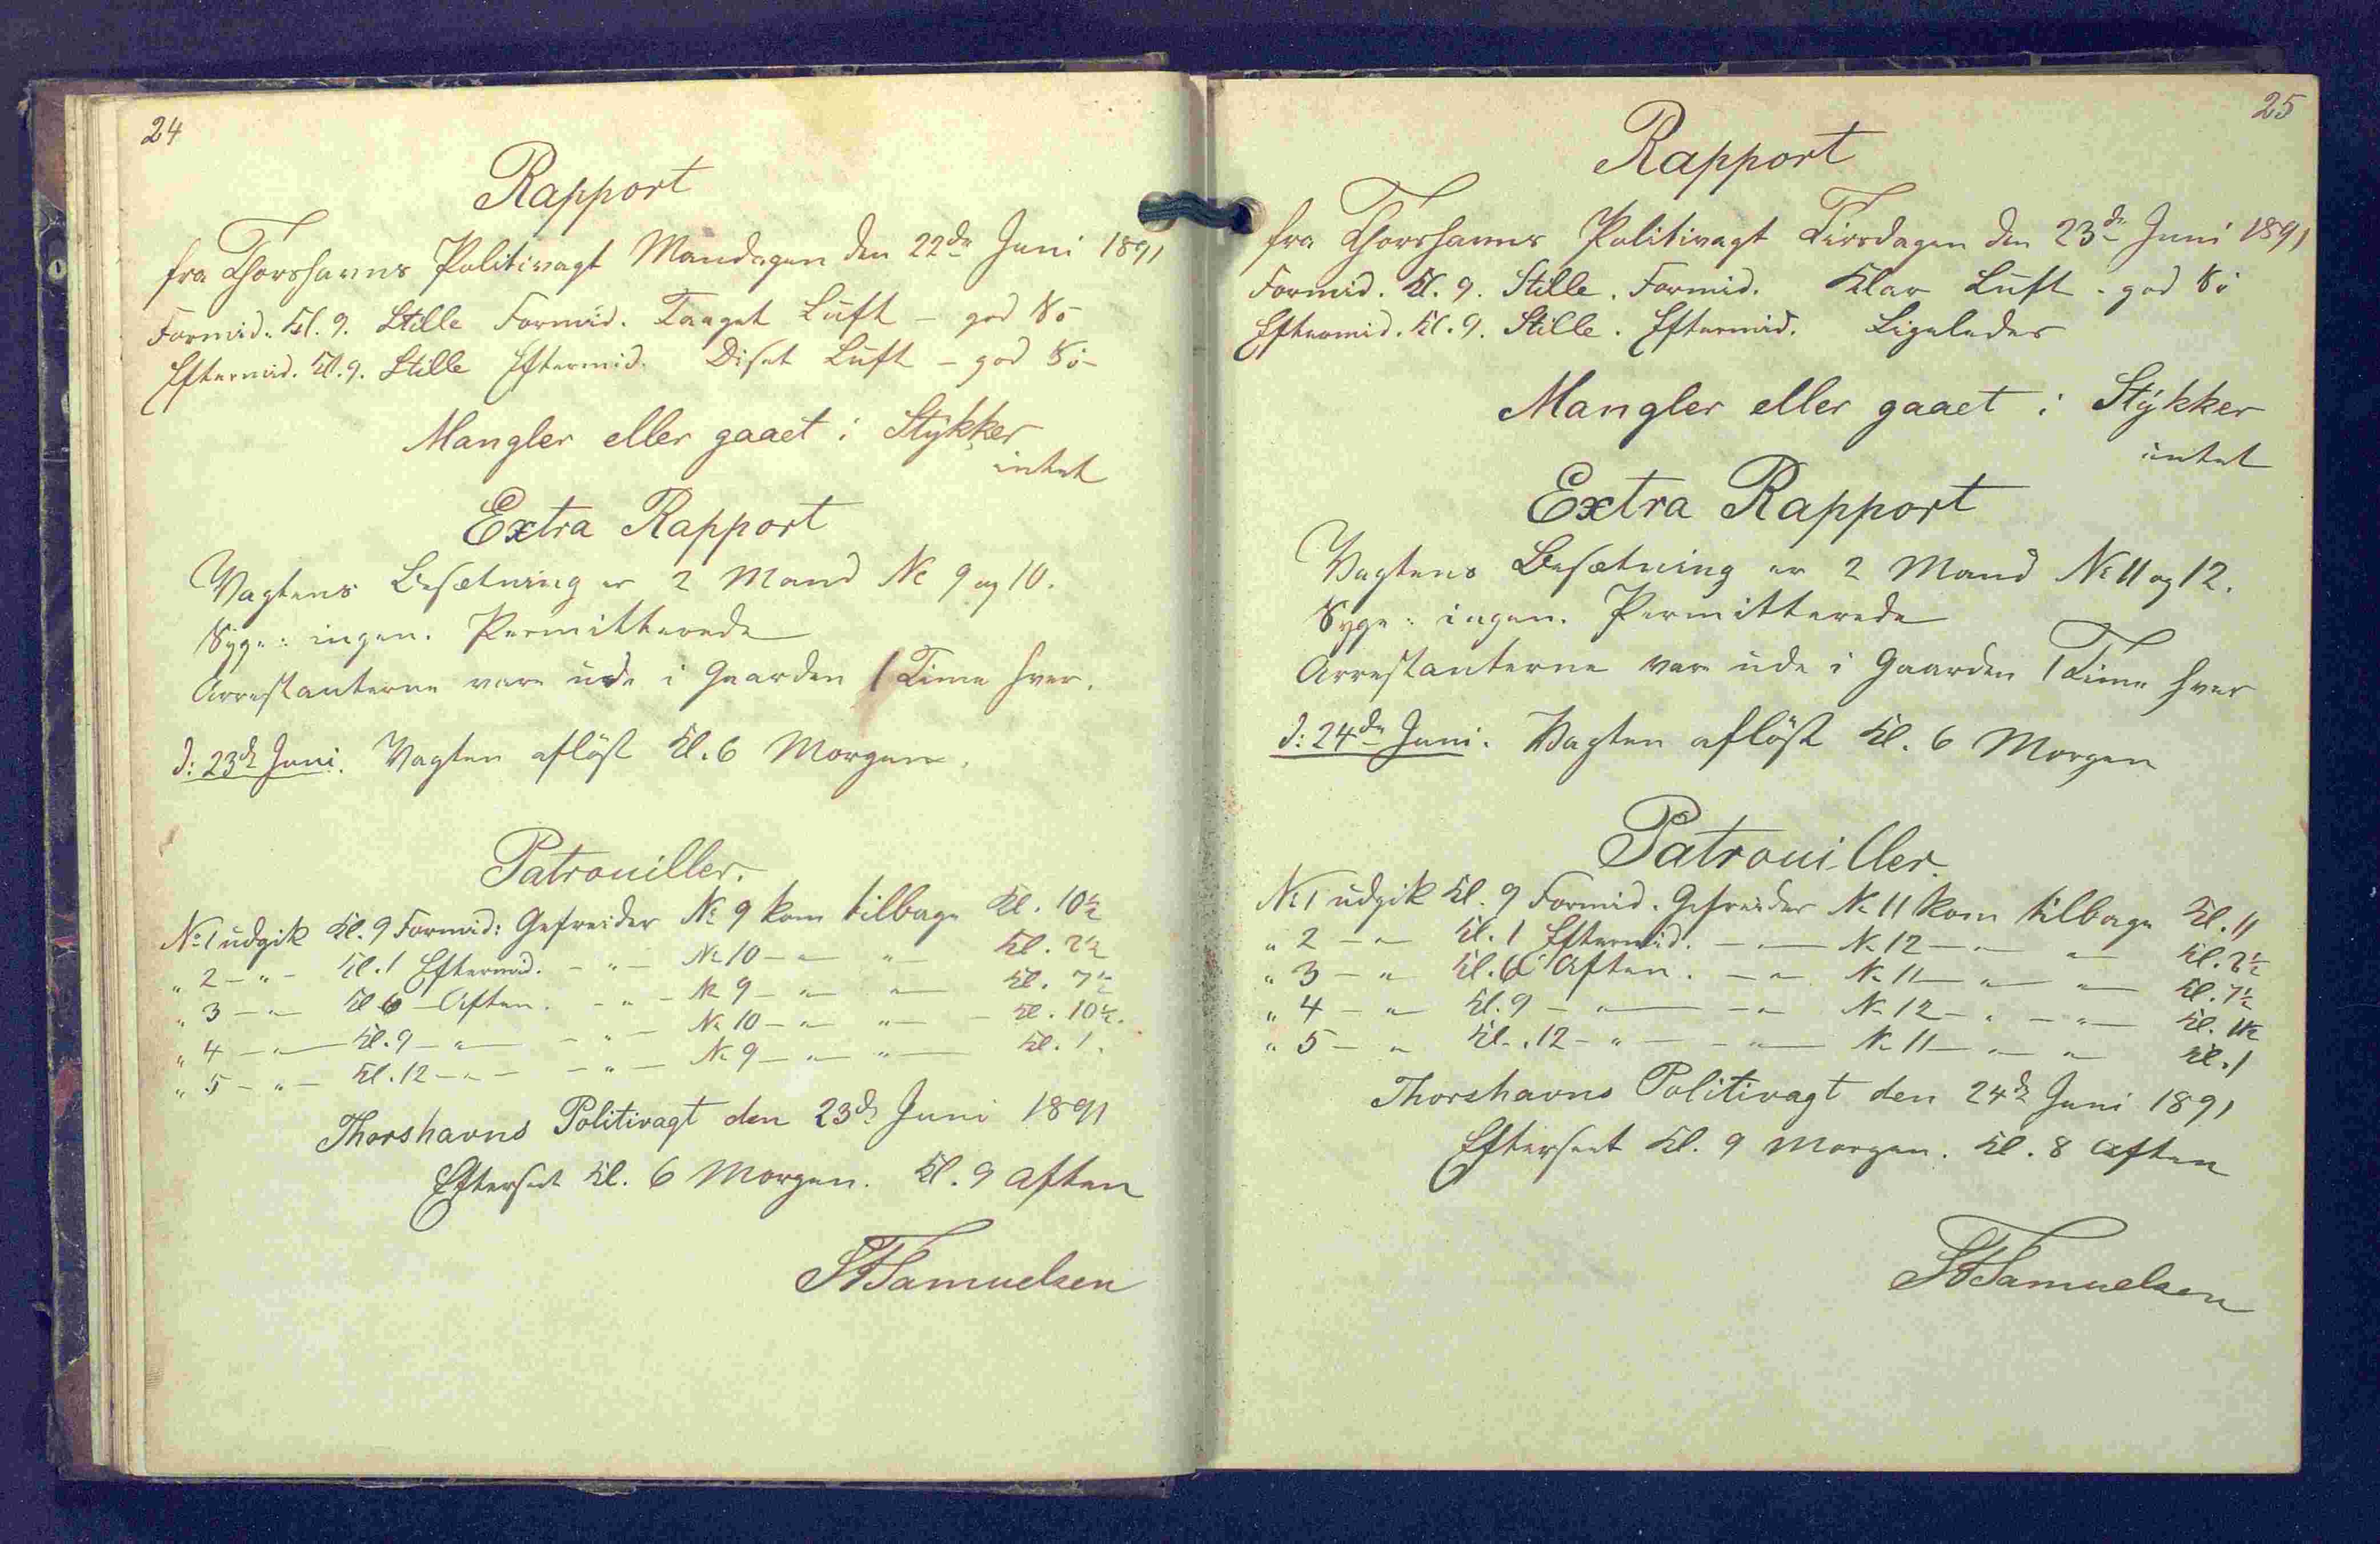 24
Rapport
fra Thorshavns Politivagt Mandagen den 22de Juni 1891
Formid. Kl. 9. Stille Formid. Taaget Luft - god Sö
Eftermid. Kl. 9. Stille Eftermid. Diset Luft - god Sö -
Mangler eller gaaet i Stykker
intet
Extra Rapport
Vagtens Besætning er 2 Mand No 9 og 10.
Syge: ingen. Permitterede
Arrestanterne vare ude i Gaarden 1 Time hver.
d: 23de Juni. Vagten aflöst Kl. 6 Morgen.
Patrouiller.
No 1 udgik Kl. 9 Formid: Gefreider No 9 kom tilbage Kl. 10½
" 2 - " - Kl. 1 Eftermid. - " - No 10 - " - " - Kl. 2½
" 3 - " - Kl 6 - Aften. - " - No 9 - " - " - Kl. 7½
" 4 - " - Kl. 9 - " - - " - No 10 - " - " - Kl. 10½.
" 5 - " - Kl. 12 - " - - " - No 9 - " - " - Kl. 1.
Thorshavns Politivagt den 23de Juni 1891
Efterseet Kl. 6 Morgen. Kl. 9 Aften
Samuelsen
25
Rapport
fra Thorshavns Politivagt Tirsdagen den 23de Juni 1891
Formid. Kl. 9. Stille. Formid. Klar Luft - god Sö
Eftermid. Kl. 9. Stille. Eftermid. Ligeledes
Mangler eller gaaet i Stykker
intet
Extra Rapport
Vagtens Besætning er 2 Mand No 11 og 12.
Syge: ingen. Permitterede
Arrestanterne vare ude i Gaarden 1 Time hver
d: 24de Juni. Vagten aflöst Kl. 6 Morgen
Patrouiller.
No 1 udgik Kl. 9 Formid. Gefreider No 11 kom tilbage Kl. 11
" 2 - " - Kl. 1 Eftermid. - " - No 12 - " - " - Kl. 2½
" 3 - " - Kl. 6 Aften. - " - No 11 - " - " - Kl. 7½
" 4 - " - Kl. 9 - " - - " - No 12 - " - " - Kl.
" 5 - " - Kl. 12 - " - - " - No 11 - " - " - Kl. 1
Thorshavns Politivagt den 24de Juni 1891
Efterseet Kl. 9 Morgen. Kl. 8 Aften
Samuelsen